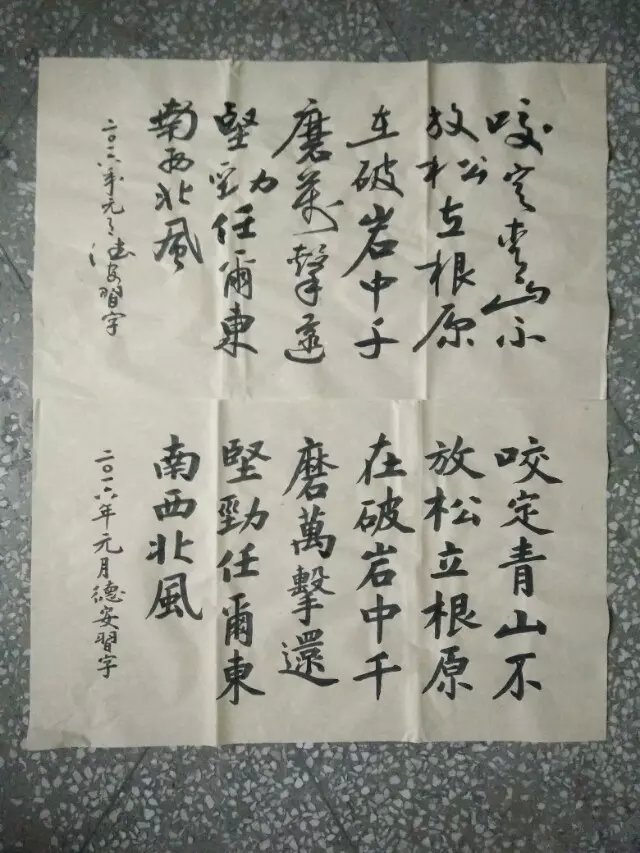 咬定青山不
放松立根原
在破岩中千
磨萬擊還
堅勁任爾東
南西北風
二〇一六年元月德安習字
咬定青山不
放松立根原
在破岩中千
磨萬擊還
堅勁任爾東
南西北風
二〇一六年元月德安習字